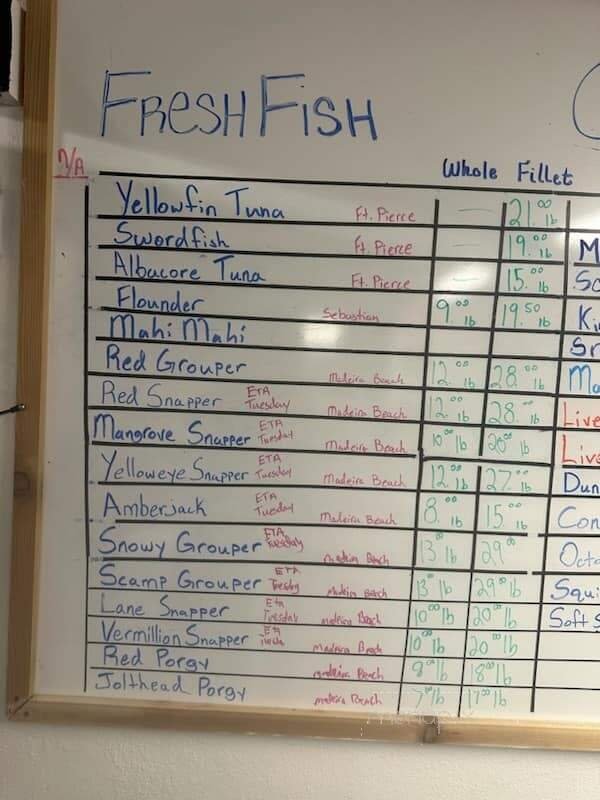 FRESH FISH
N/A
Whole Fillet
Yellowfin Tuna Ft. Pierce — 21.00 lb
Swordfish Ft. Pierce — 19.00 lb
Albacore Tuna Ft. Pierce — 15.00 lb
Flounder Sebastian 9.00 lb 19.50 lb
Mahi Mahi
Red Grouper Madeira Beach 12.00 lb 28.00 lb
Red Snapper ETA Tuesday Madeira Beach 12.00 lb 28.00 lb
Mangrove Snapper ETA Tuesday Madeira Beach 10.00 lb 20.00 lb
Yelloweye Snapper ETA Tuesday Madeira Beach 12.00 lb 27.00 lb
Amberjack ETA Tuesday Madeira Beach 8.00 lb 15.00 lb
Snowy Grouper ETA Tuesday Madeira Beach 13 lb 29.00
Scamp Grouper ETA Tuesday Madeira Beach 13 lb 29.00 lb
Lane Snapper ETA Tuesday Madeira Beach 10.00 lb 20.00 lb
Vermillion Snapper ETA Madeira Beach 10.00 lb 20.00 lb
Red Porgy Madeira Beach 8.00 lb 18.00 lb
Jolthead Porgy Madeira Beach 7.00 lb 17.00 lb
M
So
Ki
Sr
Ma
Live
Live
Dun
Con
Octo
Squi
Soft S